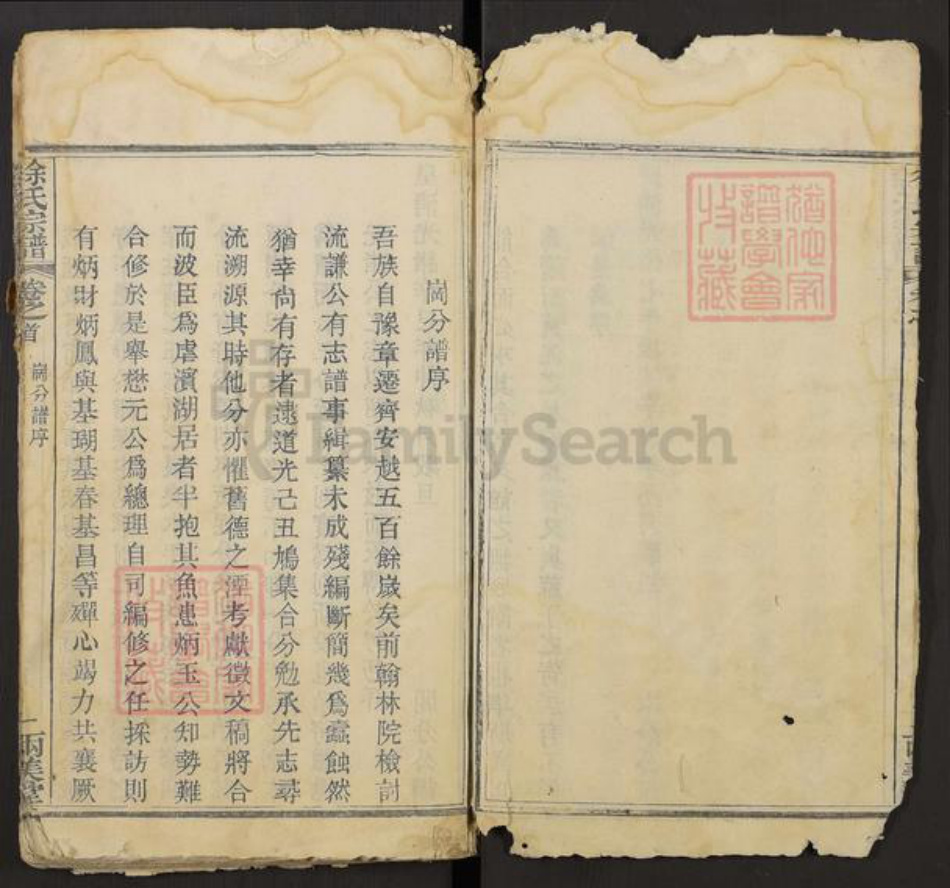 崗分譜序
吾族自豫章遷齊安越五百餘歲矣前翰林院檢討
流謙公有志譜事緝纂未成殘編斷簡幾爲蠹蝕然
猶幸尚有存者逮道光己丑鳩集合分勉承先志尋
流溯源其時他分亦懼舊德之湮考獻徵文稿將合
而波臣爲虐濱湖居者半抱其魚患炳玉公知勢難
合修於是舉懋元公爲總理自司編修之任採訪則
有炳財炳鳳與基瑚基春基昌等殫心竭力共襄厥
徐氏宗譜
卷之首
崗分譜序
一
FamilySearch